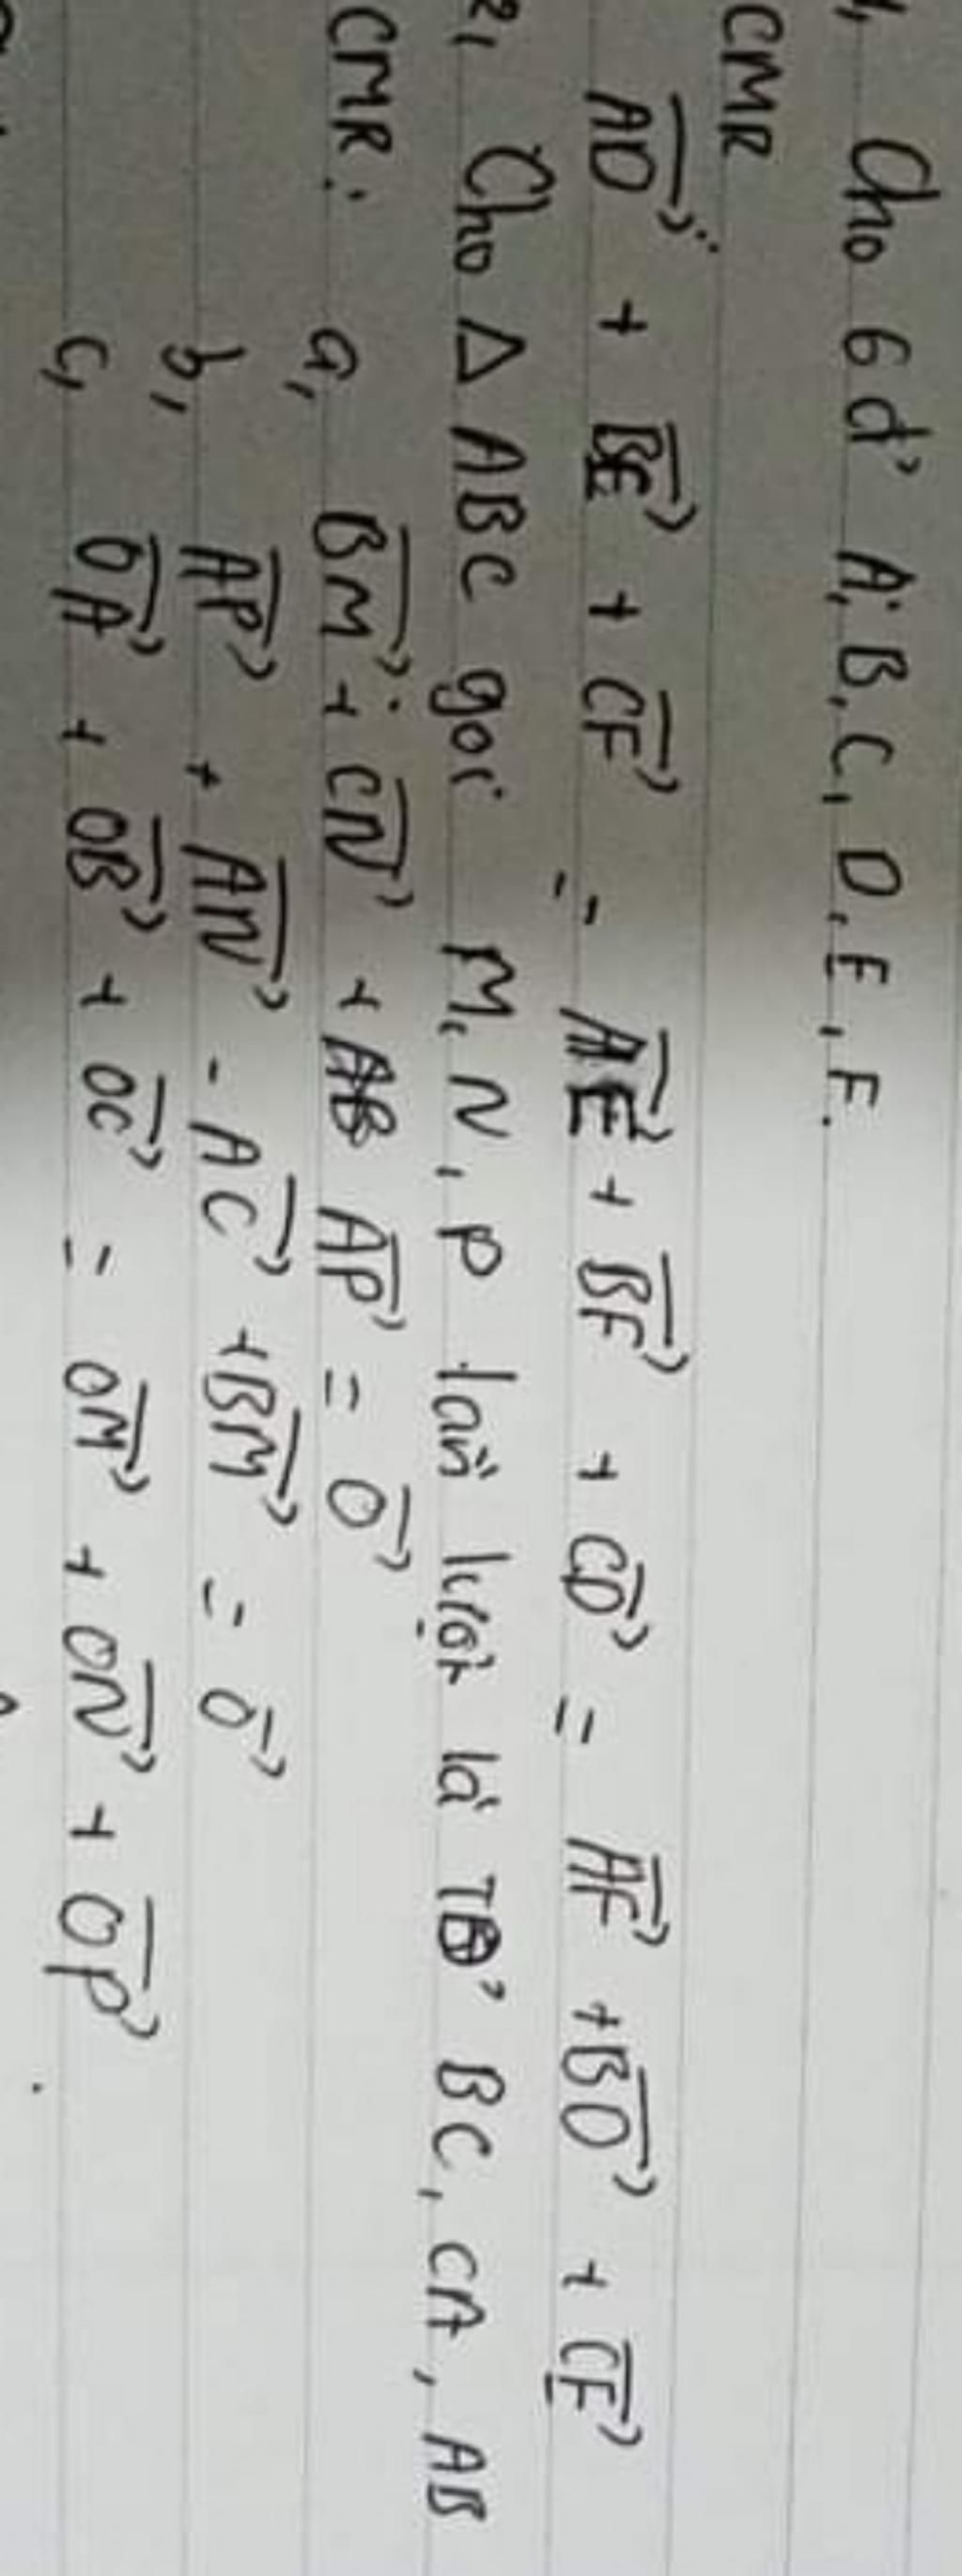 1, Cho 6 đ' A, B, C, D, E, F.
CMR
AD + BE + CF = AE + BF + CD = AF + BD + CE
2, Cho Δ ABC gọi M, N, P lần lượt là TĐ' BC, CA, AB
CMR: a, BM + CN + AP = 0
b, AP + AN - AC + BM = 0
c, OA + OB + OC = OM + ON + OP